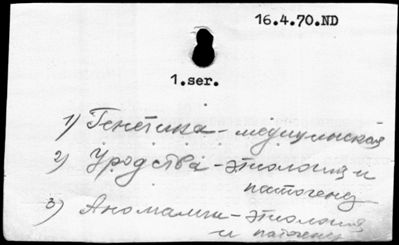 16.4.70.ND
1.ser.
1) Генетика - медицинская
2) Уродства - этиология и
патогенез
3) Аномалии - этиология
и патогенез